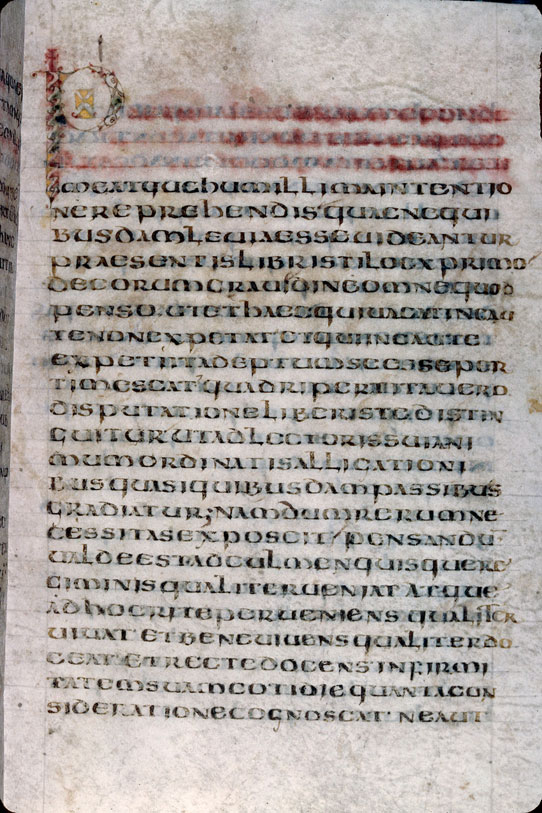 ME ATQUE HUMILLIMA INTENTIO
NE REPREHENDIS QUAE NE QUI
BUSDAM LEUIA ESSE UIDEANTUR
PRAESENTIS LIBRI STILO EXPRIMO
DE EORUM GRAUIDINE OMNE QUOD
PENSO. UT ET HAEC QUI UACAT INCAU
TE NON EXPETAT. ET QUI INCAUTE
EXPETIIT ADEPTUM SE ESSE PER
TIMESCAT QUADRIPERTITA UERO
DISPUTATIONE LIBER ISTE DISTIN
GUITUR UT AD LECTORIS SUI ANI
MUM ORDINATIS ALLIGATIONI
BUS QUASI QUIBUSDAM PASSIBUS
GRADIATUR; NAM DUM RERUM NE
CESSITAS EXPOSCIT PENSANDU
UALDE EST AD CULMEN QUISQUE RE
GIMINIS QUALITER UENIAT ATQUE
AD HOC RITE PERUENIENS QUALITER
UIUAT ET BENE UIUENS QUALITER DO
CEAT ET RECTE DOCENS INFIRMI
TATEM SUAM COTIDIE QUANTA CON
SIDERATIONE COGNOSCAT NE AUT